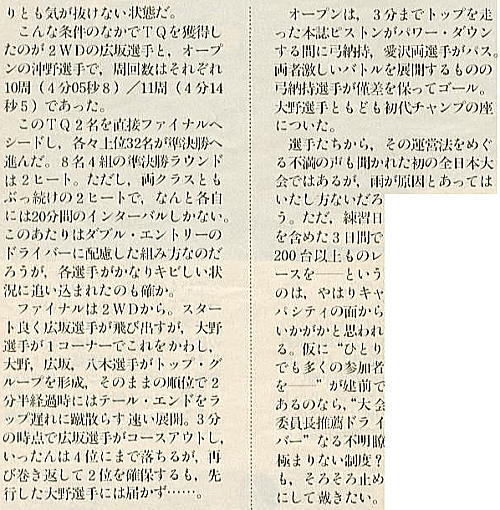 りとも気が抜けない状態だ。
こんな条件のなかでTQを獲得し
たのが2WDの広坂選手と、オープ
ンの沖野選手で、周回数はそれぞれ
10周（4分05秒8）／11周（4分14
秒5）であった。
このTQ2名を直接ファイナルへ
シードし、各々上位32名が準決勝へ
進んだ。8名4組の準決勝ラウンド
は2ヒート。ただし、両クラスとも
ぶっ続けの2ヒートで、なんと各自
には20分間のインターバルしかない。
このあたりはダブル・エントリーの
ドライバーに配慮した組み方なのだ
ろうが、各選手がかなりキビしい状
況に追い込まれたのも確か。
ファイナルは2WDから。スター
ト良く広坂選手が飛び出すが、大野
選手が1コーナーでこれをかわし、
大野，広坂，八木選手がトップ・グ
ループを形成，そのままの順位で2
分半経過時にはテール・エンドをラ
ップ遅れに蹴散らす速い展開。3分
の時点で広坂選手がコースアウトし、
いったんは4位にまで落ちるが、再
び巻き返して2位を確保するも、先
行した大野選手には届かず……。
オープンは、3分までトップを走
った本誌ピストンがパワー・ダウン
する間に弓納持，愛沢両選手がパス。
両者激しいバトルを展開するものの
弓納持選手が僅差を保ってゴール。
大野選手ともども初代チャンプの座
についた。
選手たちから、その運営法をめぐ
る不満の声も聞かれた初の全日本大
会ではあるが、雨が原因とあっては
いたし方ないだろ
う。ただ、練習日
を含めた3日間で
200台以上ものレ
ースを──という
のは、やはりキャ
パシティの面から
いかがかと思われ
る。仮に“ひとり
でも多くの参加者
を──”が建前で
あるのなら、“大会
委員長推薦ドライ
バー”なる不明瞭
極まりない制度？
も、そろそろ止め
にして戴きたい。